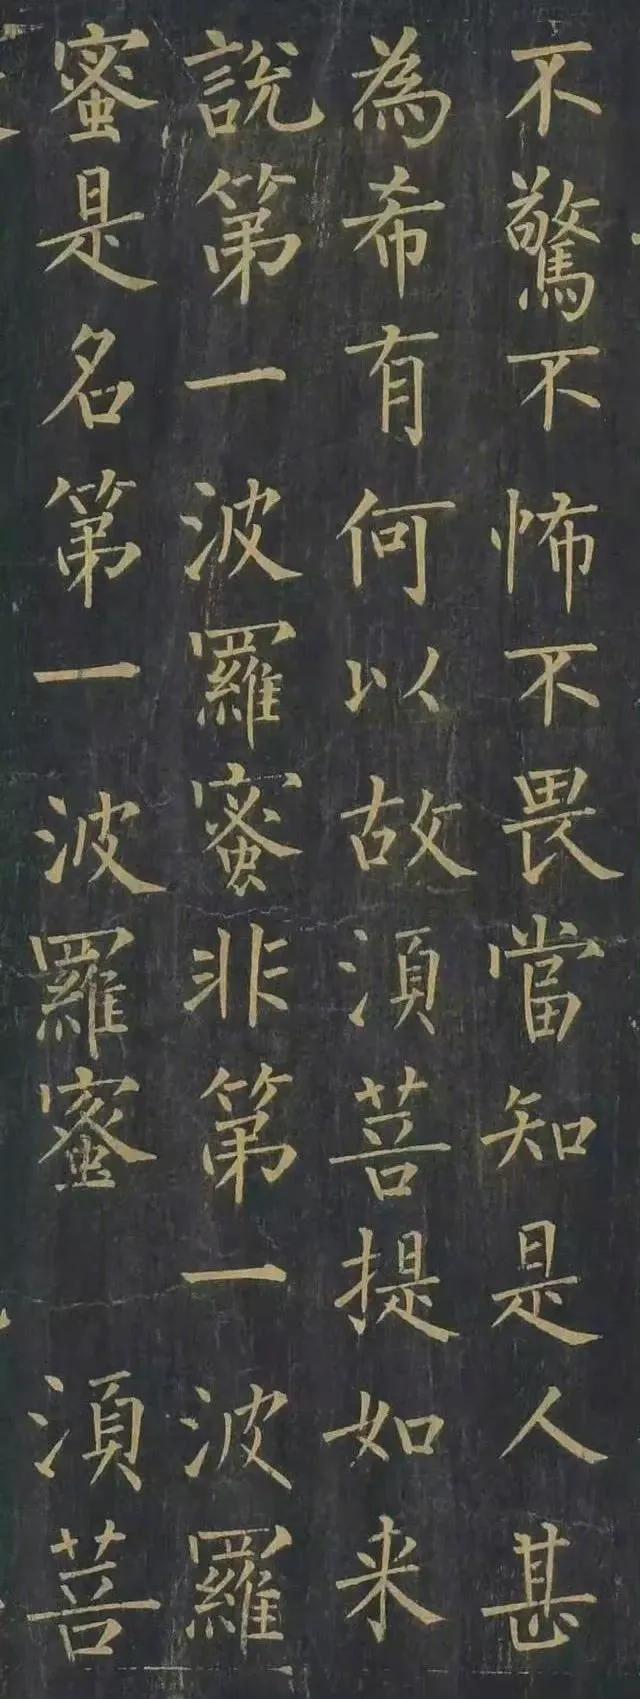 不驚不怖不畏當知是人甚
為希有何以故湏菩提如来
說第一波羅蜜非第一波羅
蜜是名第一波羅蜜 湏菩